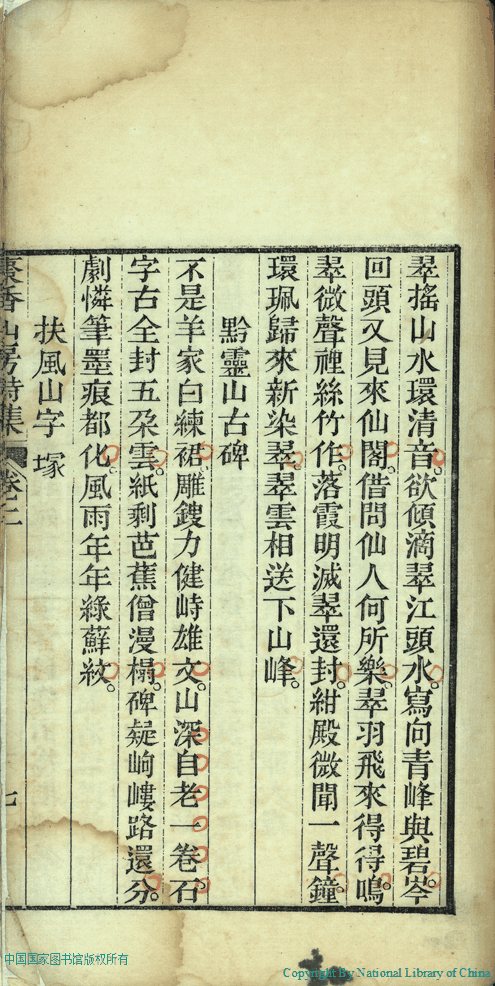 翠搖山水環清音。欲傾滴翠江頭水。寫向青峰與碧岑。
回頭又見來仙閣。借問仙人何所樂。翠羽飛來得得鳴。
翠微聲裡絲竹作。落霞明滅翠還封。紺殿微聞一聲鐘。
環珮歸來新染翠。翠雲相送下山峰。
黔靈山古碑
不是羊家白練裙。雕鎪力健峙雄文。山深自老一卷石。
字古全封五朶雲。紙剩芭蕉僧漫榻。碑疑岣嶁路還分。
劇憐筆墨痕都化。風雨年年綠蘚紋。
扶風山字塚
香山房詩集 卷二 七
中国国家图书馆版权所有
Copyright By National Library of China